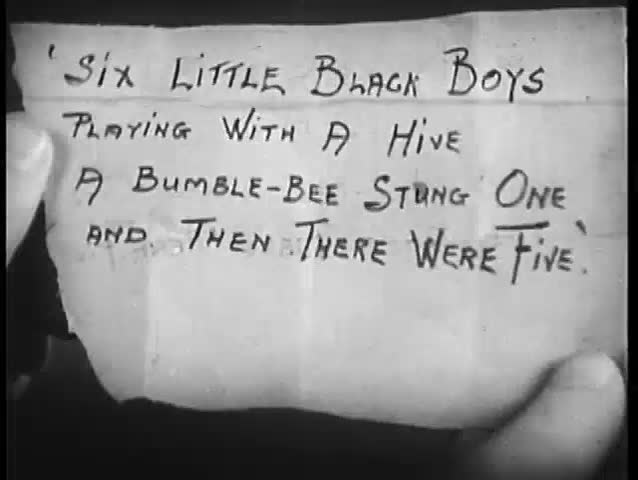 'Six Little Black Boys
Playing With A Hive
A Bumble-Bee Stung One
And Then There Were Five.'